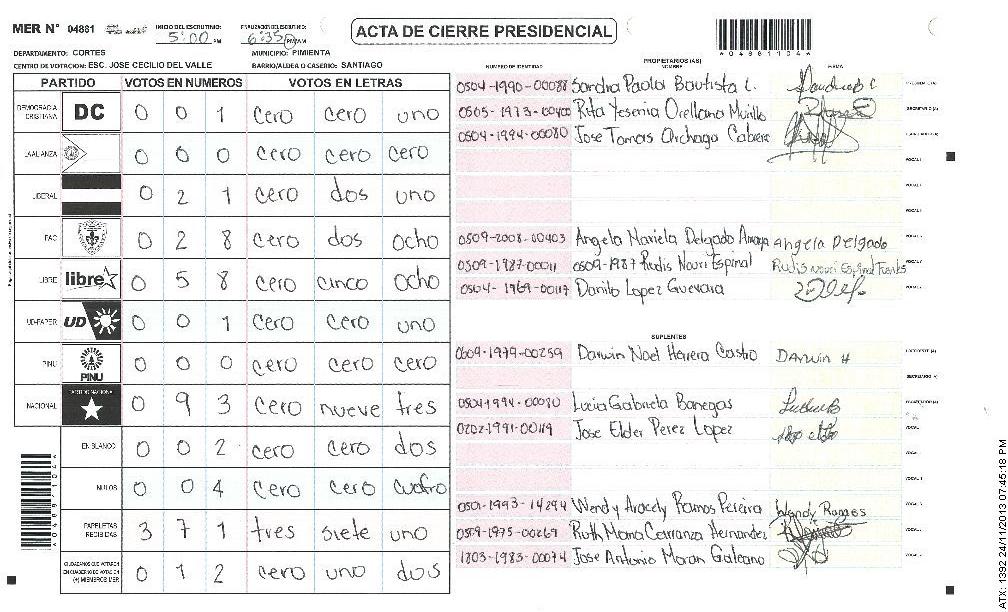 MER N° 04881 INICIO DEL ESCRUTINIO: 5:00 FINALIZACION DEL ESCRUTINIO: 6:35 PM/AM
ACTA DE CIERRE PRESIDENCIAL
*0488104*
DEPARTAMENTO: CORTES MUNICIPIO: PIMIENTA
CENTRO DE VOTACION: ESC. JOSE CECILIO DEL VALLE BARRIO/ALDEA O CASERIO: SANTIAGO
PARTIDO VOTOS EN NUMEROS VOTOS EN LETRAS
DEMOCRACIA CRISTIANA DC 0 0 1 cero cero uno
LA ALIANZA 0 0 0 cero cero cero
LIBERAL 0 2 1 cero dos uno
PAC 0 2 8 cero dos ocho
LIBRE libre 0 5 8 cero cinco ocho
UD-FAPER UD 0 0 1 cero cero uno
PINU PINU 0 0 0 cero cero cero
NACIONAL PARTIDO NACIONAL 0 9 3 cero nueve tres
EN BLANCO 0 0 2 cero cero dos
NULOS 0 0 4 cero cero cuatro
PAPELETAS RECIBIDAS 3 7 1 tres siete uno
CIUDADANOS QUE VOTARON EN CUADERNO DE VOTACION (+) MIEMBROS MER 0 1 2 cero uno dos
NUMERO DE IDENTIDAD PROPIETARIOS (AS) NOMBRE FIRMA
0504-1990-00088 Sandra Paola Bautista L. PRESIDENTE (A)
0505-1973-00400 Rita Yesenia Orellana Murillo SECRETARIO (A)
0504-1994-00080 Jose Tomas Orchaga Cabrera
VOCAL I
0509-2008-00403 Angela Mariela Delgado Amaya Angela Delgado
0509-1987-00011 0509-1987 Rudis Nouri Espinal Rudis Nouri Espinal Fuentes
0504-1969-00117 Danilo Lopez Guevara
SUPLENTES
0609-1979-00259 Darwin Noel Herera Castro DARWIN H
SECRETARIO (A)
0504-1994-00080 Lucia Gabriela Banegas
0202-1991-00119 Jose Elder Perez Lopez
0501-1993-14294 Wendy Aracely Ramos Pereira Wendy Ramos
0509-1975-00269 Ruth Maria Carranza Hernandez
1803-1983-00074 Jose Antonio Moran Galeano
ATX: 1392 24/11/2013 07:45:18 PM